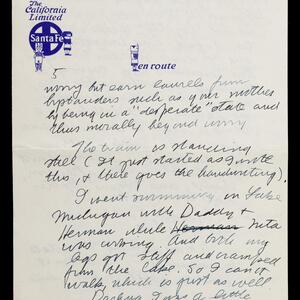 The
California
Limited
Santa Fe
en route
5
worry but earn laurels from
bystanders such as your mother
by being in a "desperate" state and
thus morally beyond worry
The train is standing
still (It just started as I wrote
this, & there goes the handwriting).
I went swimming in Lake
Michigan with Daddy &
Herman while Herman Nita
was working. And both my
legs got stiff and cramped
from the lake. So I can't
walk, which is just as well